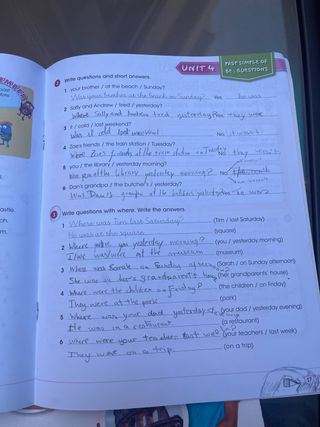 UNIT 4
PAST SIMPLE OF
BE: QUESTIONS
2 Write questions and short answers.
1 your brother / at the beach / Sunday?
Was your brother at the beach on Sunday? Yes he was
2 Sally and Andrew / tired / yesterday?
Where Sally and Andrew tired yesterday? Yes they were
3 it / cold / last weekend?
Was it cold last weekend No it wasn't
4 Zoe's friends / the train station / Tuesday?
Were Zoe's friends at the train station on Tuesday No they weren't
5 you / the library / yesterday morning?
Were you at the library yesterday morning? No
6 Dan's grandpa / the butcher's / yesterday?
Was Dan's grandpa at the butchers yesterday Yes he was
3 Write questions with where. Write the answers.
1 Where was Tim last Saturday? (Tim / last Saturday)
He was at the square (square)
2 Where were you yesterday morning? (you / yesterday morning)
I/we was/were at the museum (museum)
3 Where was Sarah on Sunday afternoon (Sarah / on Sunday afternoon)
She was in hers grandparents' house (her grandparents' house)
4 Where were the children on Friday? (the children / on Friday)
They were at the park (park)
5 Where was your dad yesterday evening (your dad / yesterday evening)
He was in a restaurant (a restaurant)
6 where were your teachers last week? (your teachers / last week)
They were on a trip (on a trip)